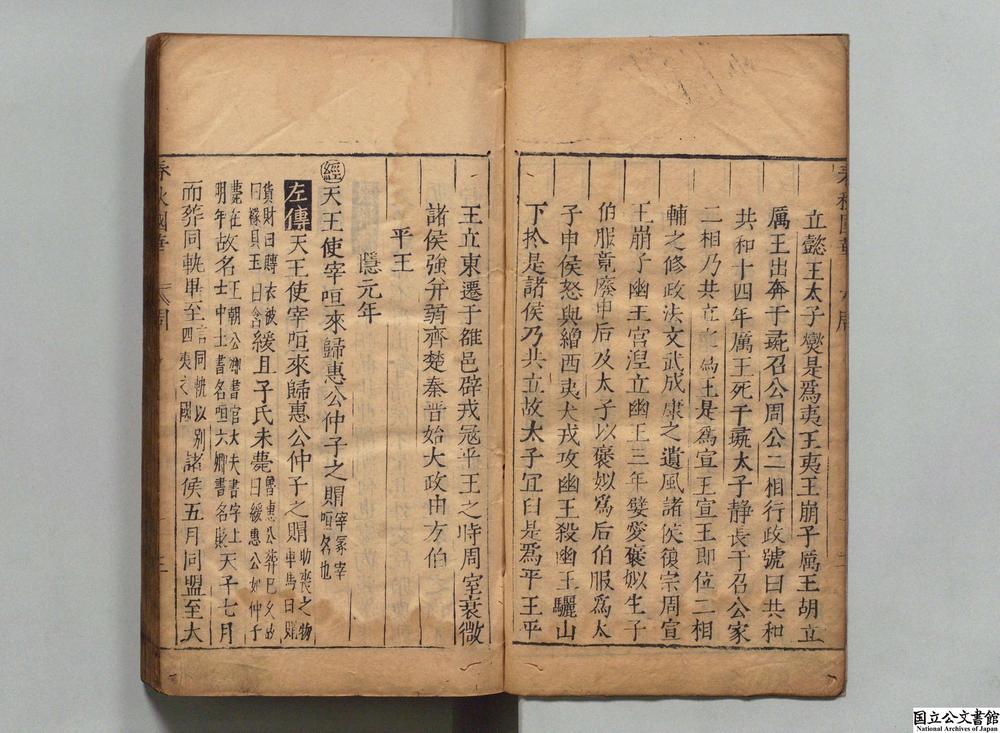 立懿王太子燮是爲夷王夷王崩子厲王胡立
厲王出奔于彘召公周公二相行政號曰共和
共和十四年厲王死于彘太子静長于召公家
二相乃共立爲王是爲宣王宣王即位二相
輔之修政法文武成康之遺風諸侯復宗周宣
王崩子幽王宮湼立幽王三年嬖愛褒姒生子
伯服竟廢申后及太子以褒姒爲后伯服爲太
子申侯怒與繒西夷犬戎攻幽王殺幽王驪山
下於是諸侯乃共立故太子宜臼是爲平王平
王立東遷于雒邑辟戎冦平王之時周室衰微
諸侯強弁弱齊楚秦晋始大政由方伯
平王
隱元年
經天王使宰咺來歸惠公仲子之賵宰冢宰咺名也
左傳天王使宰咺來歸惠公仲子之賵助喪之物車馬曰賵
貨財曰賻衣被曰襚貝玉曰含緩且子氏未薨魯惠公葬巳久故曰緩惠公妃仲子
薨在明年故名王朝公卿書官大夫書字上士中士書名咺六卿書名貶天子七月
而葬同軌畢至言同軌以别四夷之國諸侯五月同盟至大
春秋國華
周
三
国立公文書館
National Archives of Japan